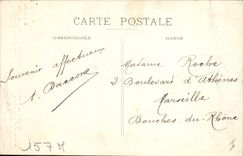 CARTE POSTALE
CORRESPONDANCE
ADRESSE
Souvenir affectueux
A.
Madame Roche
2 Boulevard d'Athènes
Marseille
Bouches-du-Rhône